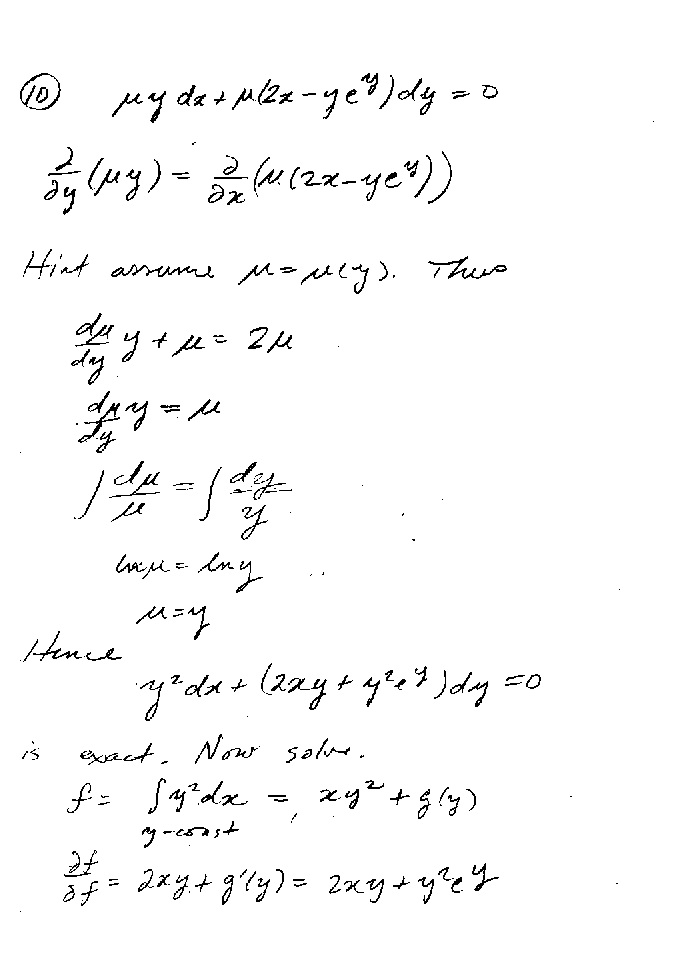 ⑩ μy dx + μ(2x − ye^y) dy = 0
∂/∂y (μy) = ∂/∂x (μ(2x − ye^y))
Hint assume μ = μ(y). Thus
dμ/dy y + μ = 2μ
dμ/dy y = μ
∫ dμ/μ = ∫ dy/y
ln μ = ln y
μ = y
Hence
y² dx + (2xy + y²e^y) dy = 0
is exact. Now solve.
f = ∫ y² dx = xy² + g(y)
y-const
∂f/∂f = 2xy + g'(y) = 2xy + y²e^y